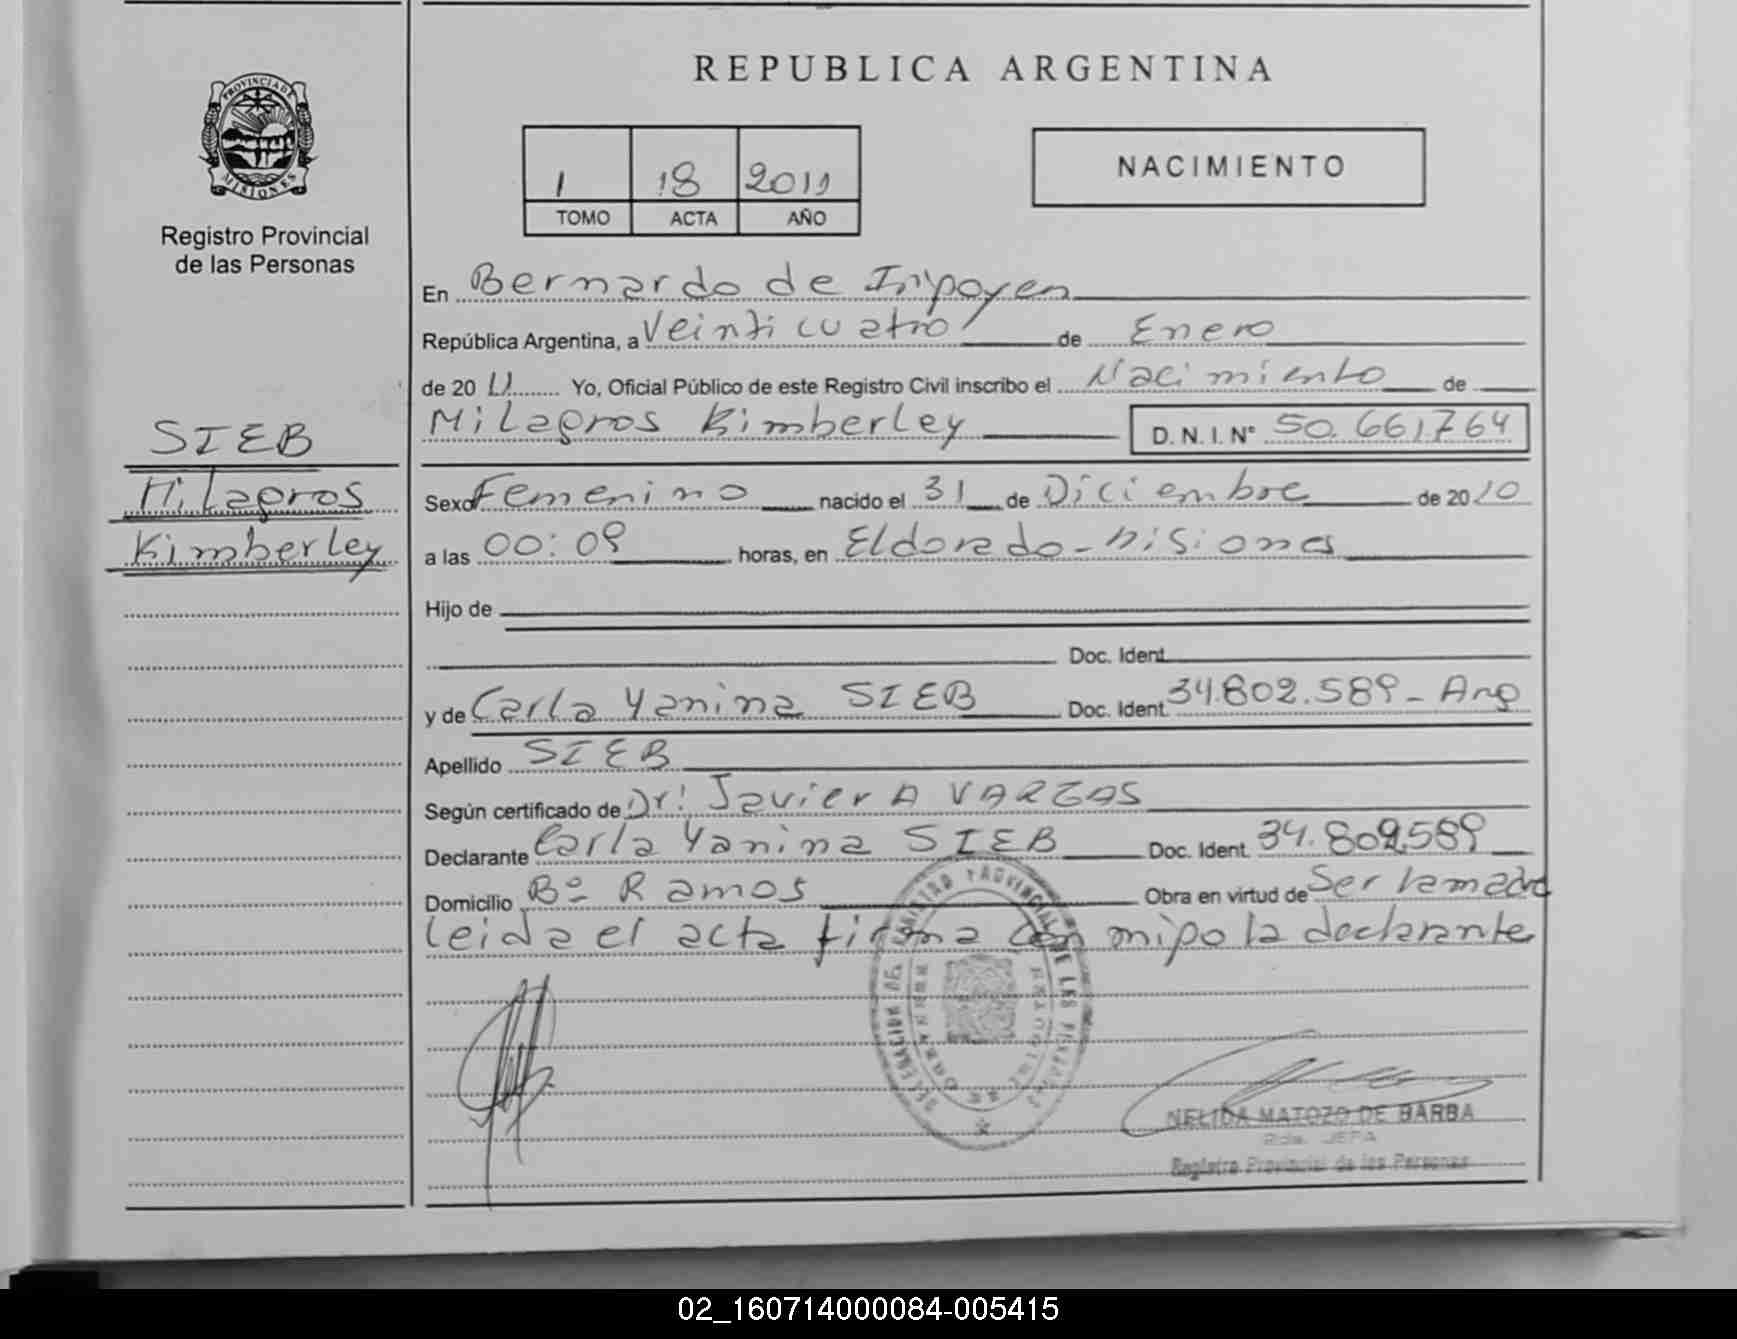 REPUBLICA ARGENTINA
PROVINCIA DE MISIONES
Registro Provincial
de las Personas
1 18 2011
TOMO ACTA AÑO
NACIMIENTO
En Bernardo de Iripoyen
República Argentina, a Veinti cuatro de Enero
de 20 11 Yo, Oficial Público de este Registro Civil inscribo el Nacimiento de
Milagros Kimberley D. N. I. N° 50.661.764
SIEB
Milagros
Kimberley
Sexo Femenino nacido el 31 de Diciembre de 2010
a las 00:09 horas, en Eldorado - Misiones
Hijo de
Doc. Ident.
y de Carla Yanina SIEB Doc. Ident. 34.802.589 - Arg
Apellido SIEB
Según certificado de Dr: Javier A VARGAS
Declarante Carla Yanina SIEB Doc. Ident. 34.802589
Domicilio B° Ramos Obra en virtud de Ser la madre
leida el acta firma con mipo la declarante
NELIDA MATOZO DE BARBA
JEFA
Registro Provincial de las Personas
02_160714000084-005415